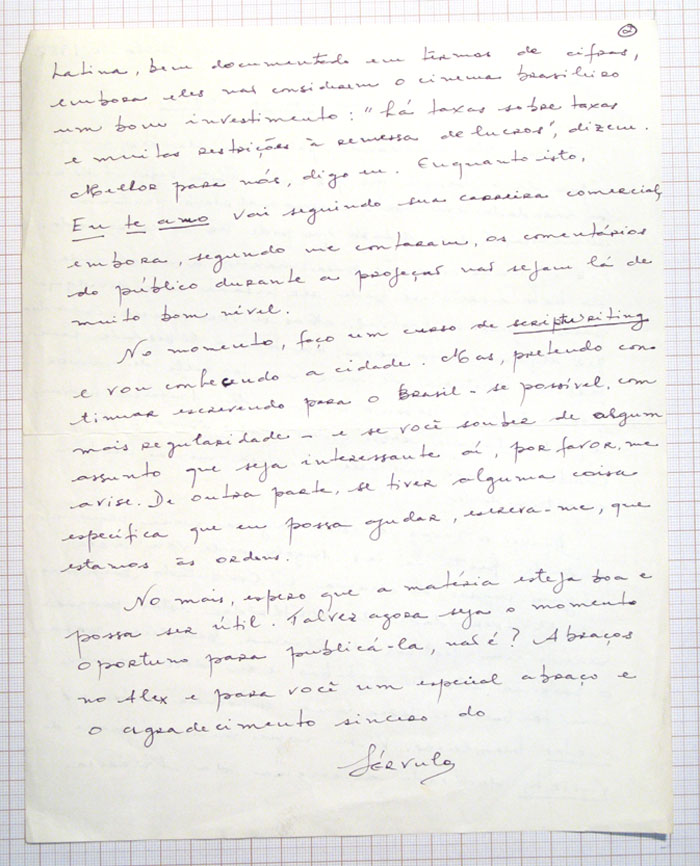 2
Latina, bem documentado em termos de cifras,
embora eles não considerem o cinema brasileiro
um bom investimento: "há taxas sobre taxas
e muitas restrições à remessa de lucros", dizem.
Melhor para nós, digo eu. Enquanto isto,
Eu te amo vai seguindo sua carreira comercial,
embora, segundo me contaram, os comentários
do público durante a projeção não sejam lá de
muito bom nível.
No momento, faço um curso de scriptwriting
e vou conhecendo a cidade. Mas, pretendo con-
tinuar escrevendo para o Brasil - se possível, com
mais regularidade - e se você souber de algum
assunto que seja interessante aí, por favor, me
avise. De outra parte, se tiver alguma coisa
específica que eu possa ajudar, escreva-me, que
estamos às ordens.
No mais, espero que a matéria esteja boa e
possa ser útil. Talvez agora seja o momento
oportuno para publicá-la, não é? Abraços
no Alex e para você um especial abraço e
o agradecimento sincero do
Sérvulo